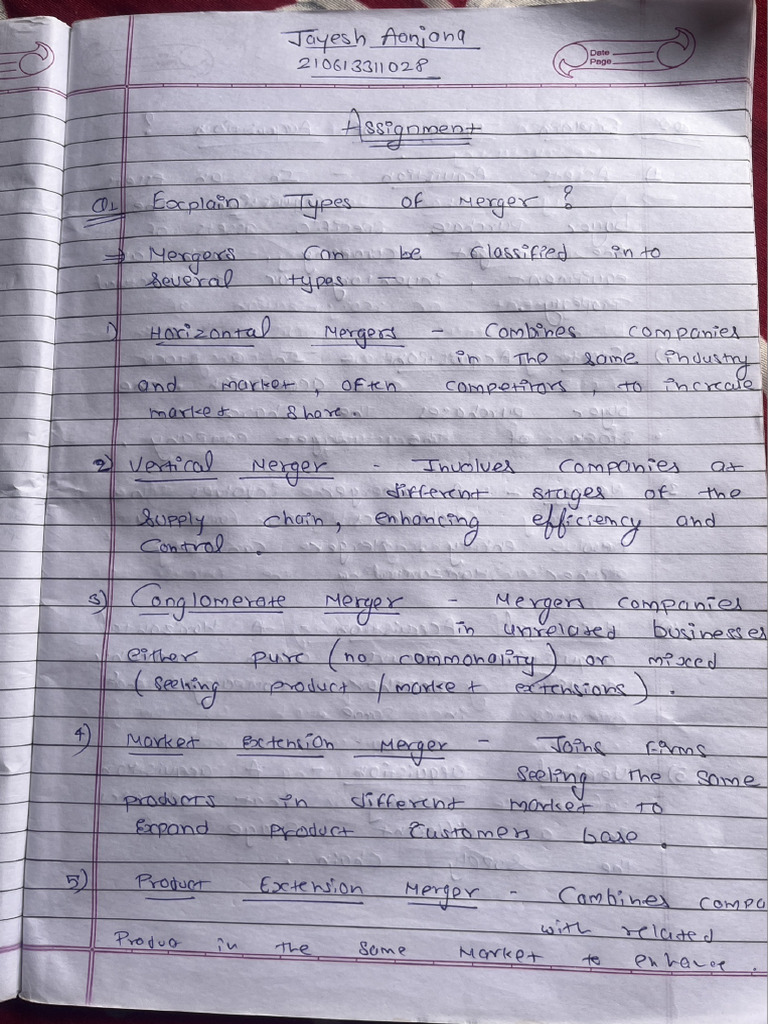 Jayesh Aanjana
210613311028
Date
Page
Assignment
Q1 Explain Types of Merger ?
⇒ Mergers can be classified in to
several types -
1) Horizontal Mergers - Combines companies
in the same industry
and market, often competitors, to increase
market share.
2) Vertical Merger - Involves companies at
different stages of the
supply chain, enhancing efficiency and
control.
3) Conglomerate Merger - Mergers companies
in unrelated businesses
either pure (no commonality) or mixed
(seeking product / market extensions).
4) Market extension Merger - Joins firms
seeling the same
products in different market to
Expand product customers base.
5) Product Extension Merger - Combines compa
with related
Produc in the same market to enhance.